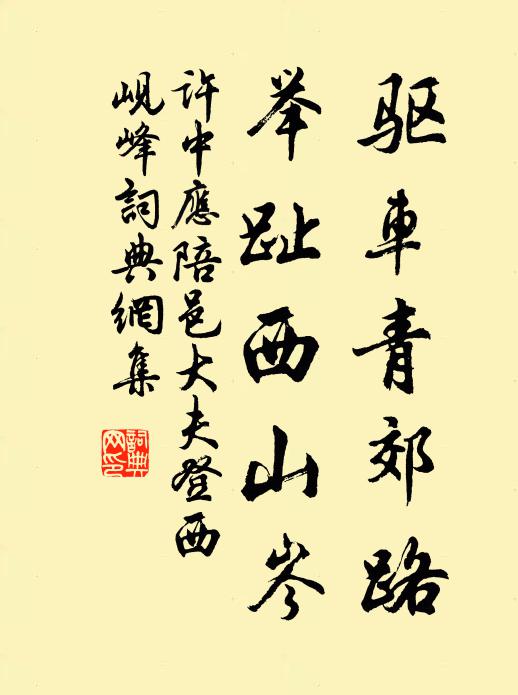 驱車青郊路
举趾西山岑
許中應陪邑大夫登西
峴峰詞典網集
詞典网印